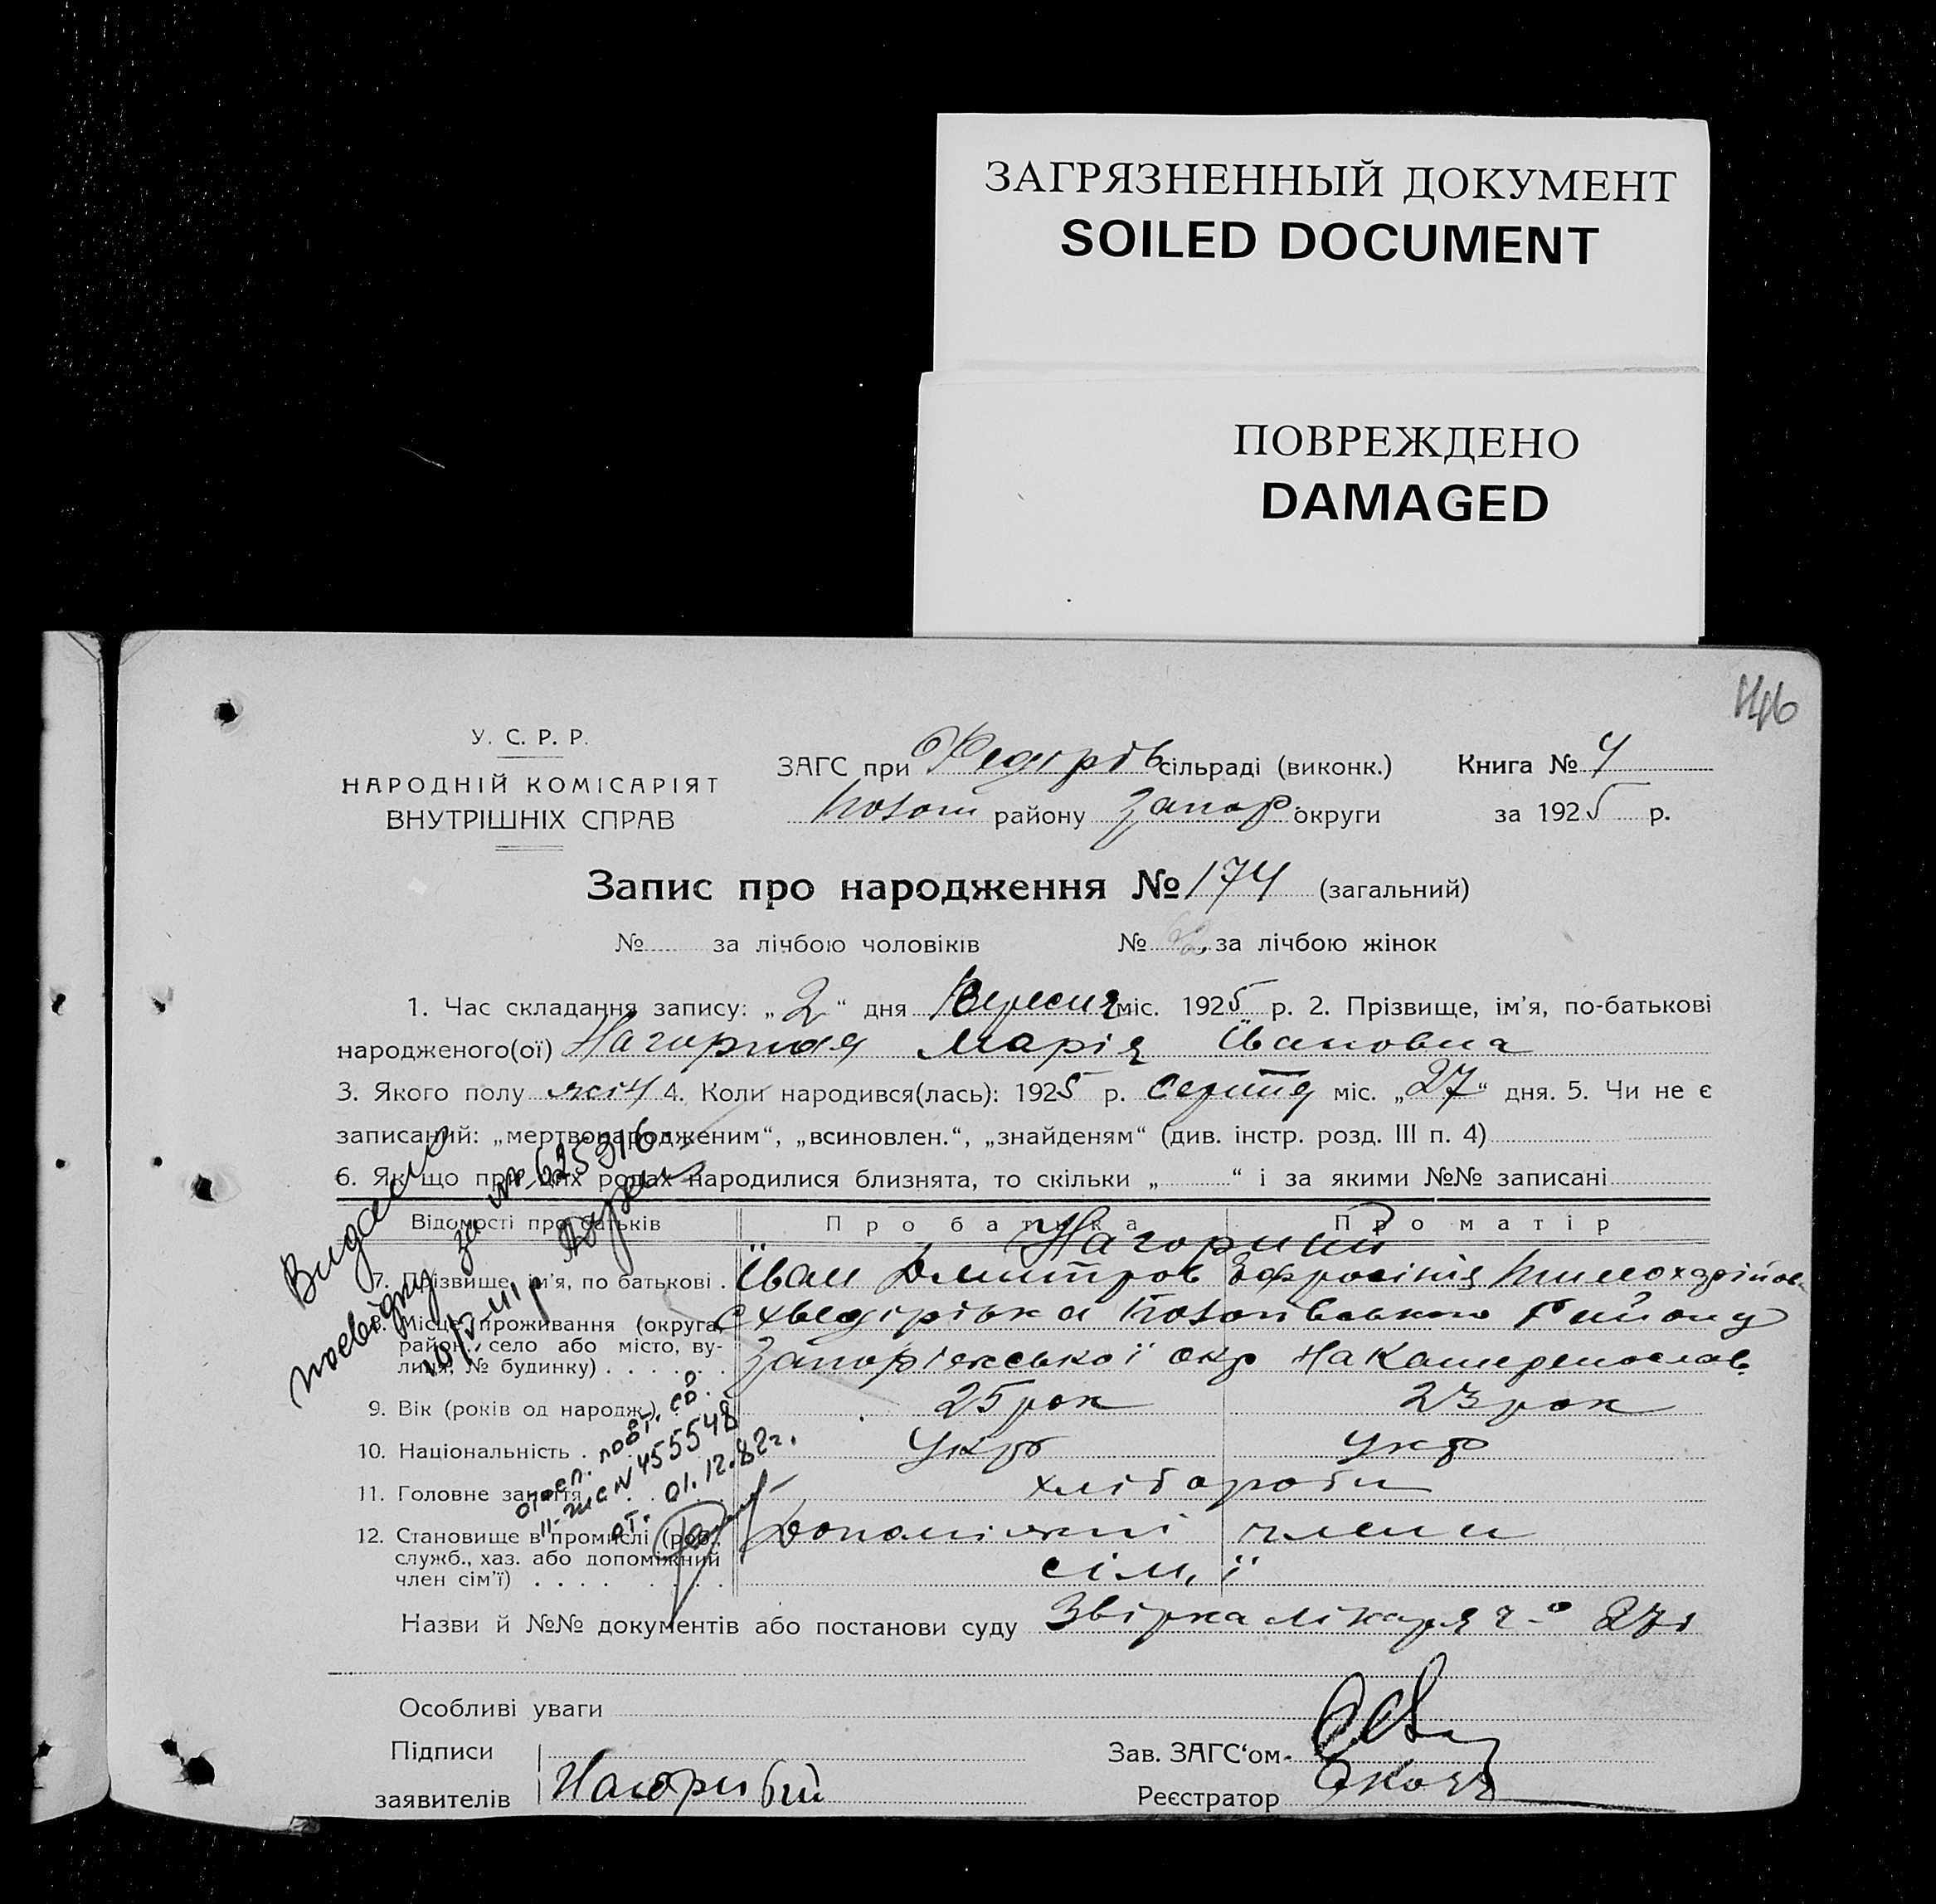 ЗАГРЯЗНЕННЫЙ ДОКУМЕНТ
SOILED DOCUMENT
ПОВРЕЖДЕНО
DAMAGED
146
У. С. Р. Р.
НАРОДНІЙ КОМІСАРІЯТ
ВНУТРІШНІХ СПРАВ
ЗАГС при Федорів сільраді (виконк.) Книга № 4
району Запор округи за 1925 р.
Запис про народження № 174 (загальний)
№ за лічбою чоловіків № за лічбою жінок
1. Час складання запису: „2“ дня Вересня міс. 1925 р. 2. Прізвище, ім'я, по-батькові
народженого(ої) Нагорная Марія Івановна
3. Якого полу жін 4. Коли народився(лась): 1925 р. Серпня міс. „27“ дня. 5. Чи не є
записаний: „мертвонародженим“, „всиновлен.“, „знайденям“ (див. інстр. розд. III п. 4)
6. Якщо при цих родах народилися близнята, то скільки „ “ і за якими №№ записані
Відомості про батьків Про батька Про матір
Нагорний
7. Прізвище, ім'я, по батькові . Іван Дмитров Ефросінія
8. Місце проживання (округа, район, село або місто, вулиця, № будинку) . . . . . .
району
Запоріжської окр на Катеренослав.
9. Вік (років од народж.) 25 рок 23 рок
10. Національність . Укр Укр
11. Головне заняття хлібороби
12. Становище в промислі (роб., служб., хаз. або допоміжний член сім'ї) . . . . Допоміжні члени
сім'ї
Назви й №№ документів або постанови суду Звірка лікаря
Особливі уваги
Підписи
заявителів Нагорный
Зав. ЗАГС'ом
Реєстратор
Видано
за № 625916
повт. св.
№ 455548
от. 01.12.82г.